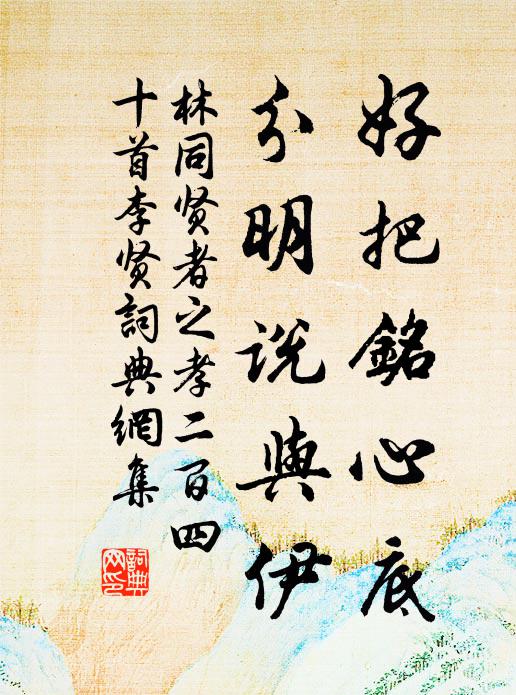 好把銘心底
分明説與伊
林同贤者之孝二百四
十首李贤詞典網集
詞典
网印